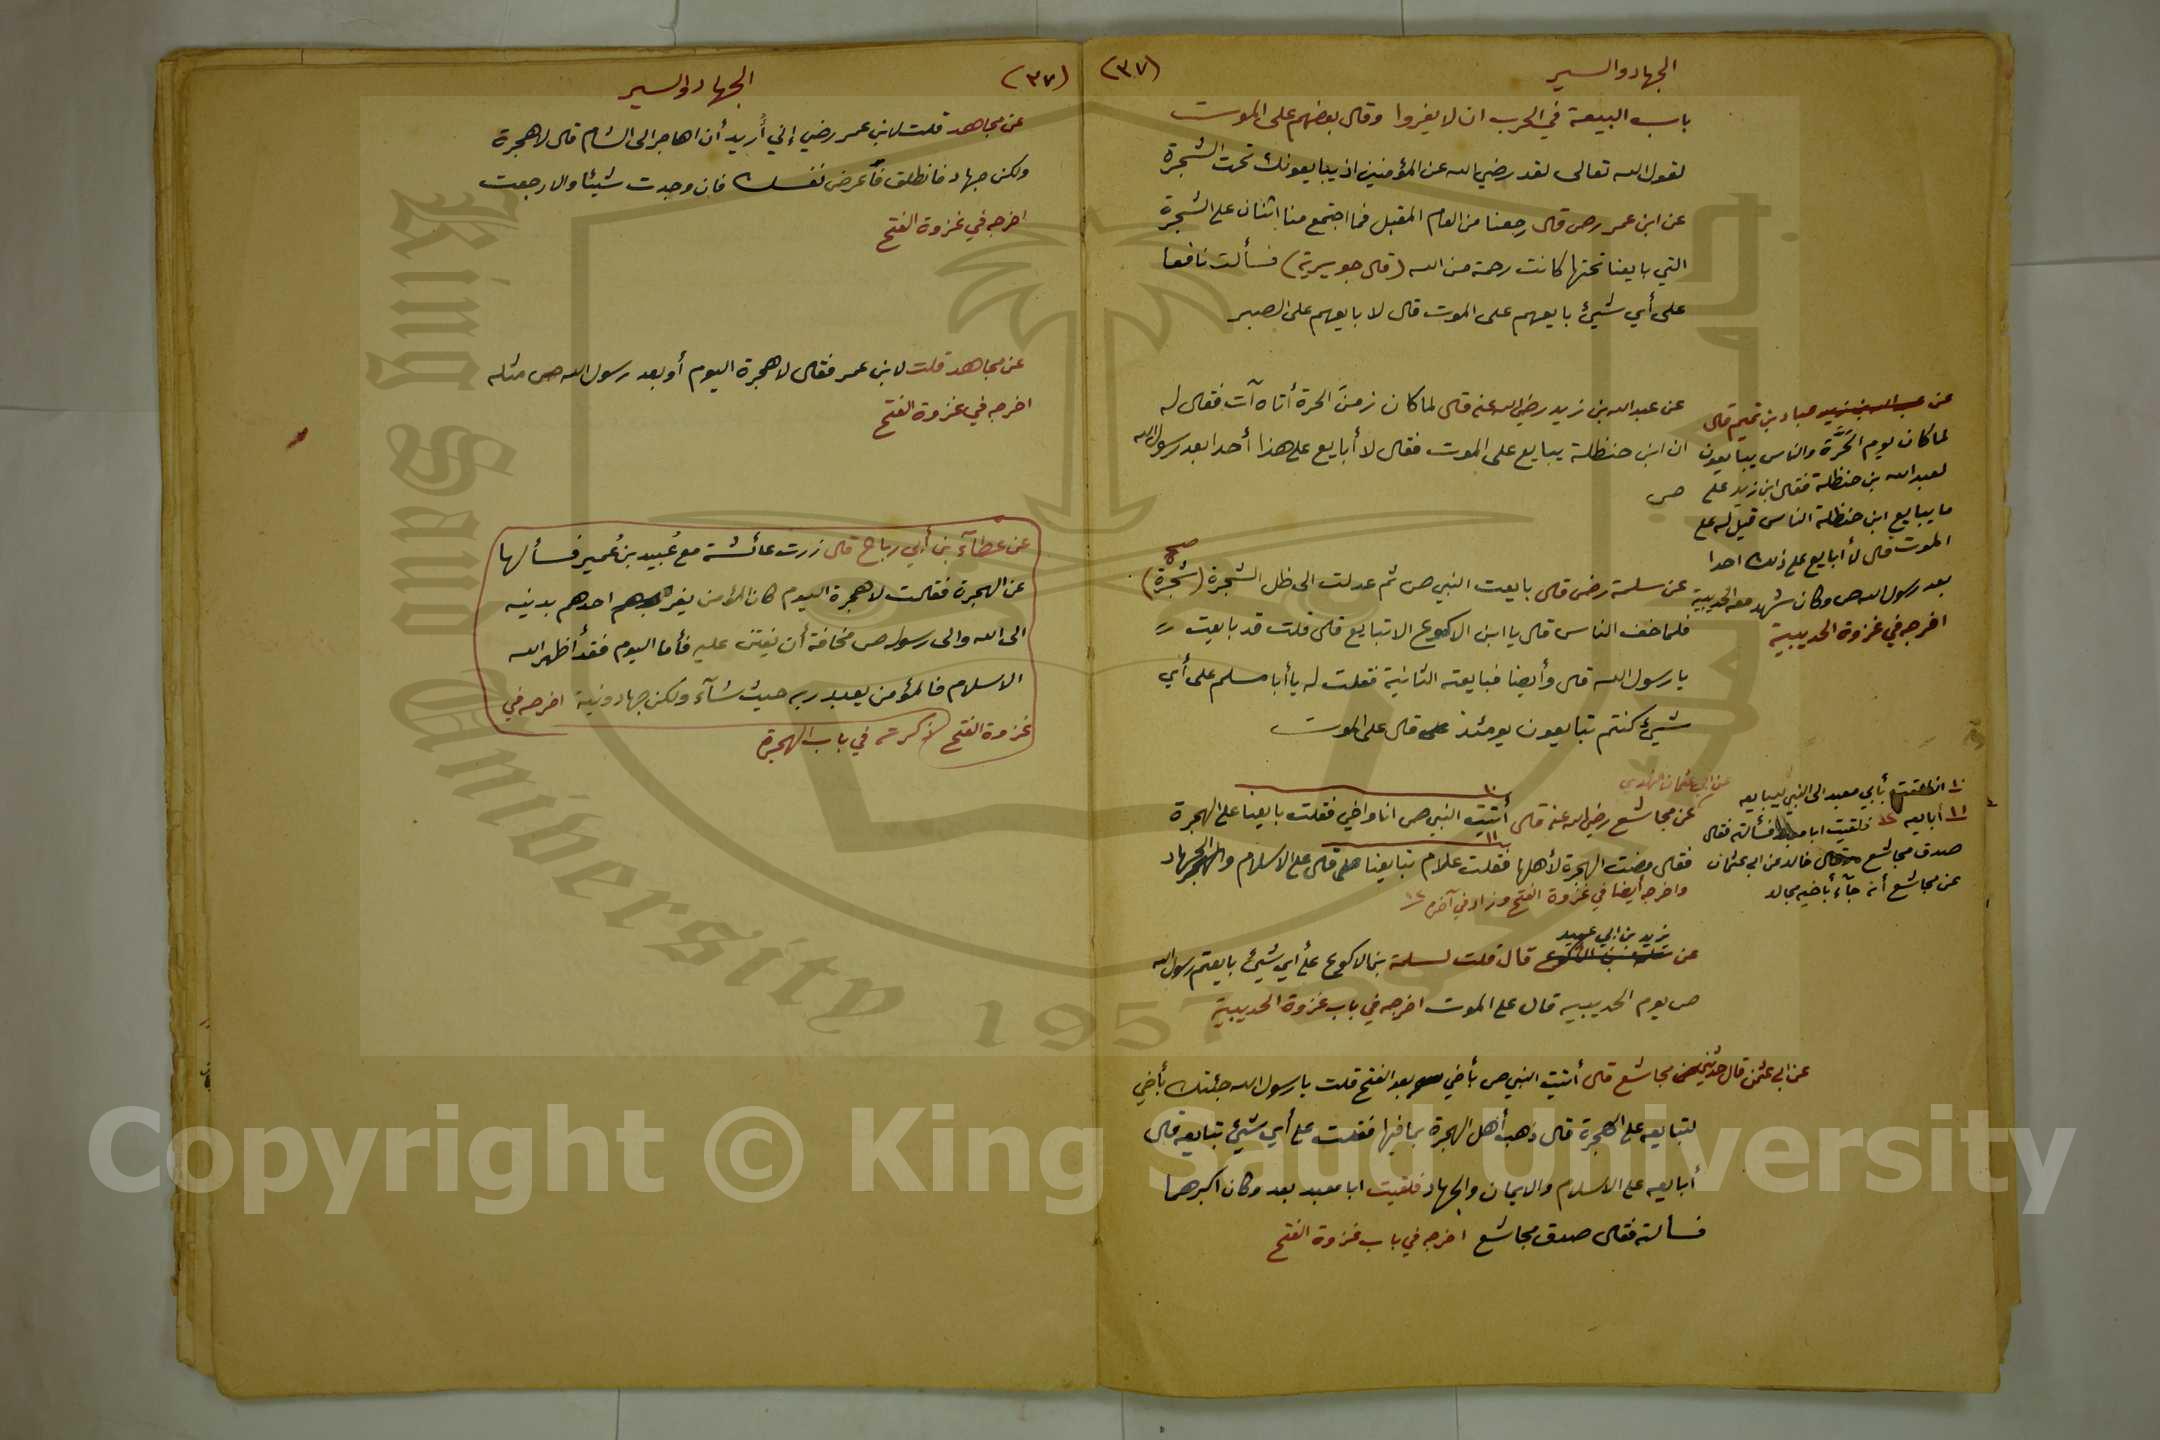 الجهاد والسير
(٣٧)
باب البيعة في الحرب ان لا يفروا وقال بعضهم على الموت
لقول الله تعالى لقد رضي الله عن المؤمنين اذ يبايعونك تحت الشجرة
عن ابن عمر رض قال رجعنا من العام المقبل فما اجتمع منا اثنان على الشجرة
التي بايعنا تحتها كانت رحمة من الله (قال جويرية) فسألت نافعا
على أي شيئ بايعهم على الموت قال لا بايعهم على الصبر
عن عبد الله بن زيد رضي الله عنه قال لما كان زمن الحرة أتاه آت فقال له
ان ابن حنظلة يبايع على الموت فقال لا أبايع على هذا أحدا بعد رسول الله
ص
عن عباد بن تميم قال
لما كان يوم الحَرَّة والناس يبايعون
لعبد الله بن حنظلة فقال ابن زيد على
ما يبايع ابن حنظلة الناس قيل له على
الموت قال لا أبايع على ذلك احدا
بعد رسول الله ص وكان شهد معه الحديبية
اخرجه في غزوة الحديبية
عن سلمة رض قال بايعت النبي ص ثم عدلت الى ظل الشجرة (شجرة)
فلما خف الناس قال يا ابن الاكوع الا تبايع قال قلت قد بايعت
يا رسول الله قال وأيضا فبايعته الثانية فقلت له يا أبا مسلم على أي
شيئ كنتم تبايعون يومئذ قال على الموت
عن ابي عثمان النهدي
عن مجاشع رضي الله عنه قال أتيت النبي ص انا واخي فقلت بايعنا على الهجرة
فقال مضت الهجرة لأهلها فقلت علام تبايعنا قال على الاسلام والجهاد
واخرجه أيضا في غزوة الفتح وزاد في آخره
١٠ انطلقت بأبي معبد الى النبي ليبايعه
١١ أبايعه فلقيت ابا معبد فسألته فقال
صدق مجاشع وقال خالد عن ابي عثمان
عن مجاشع أنه جآء بأخيه مجالد
يزيد بن ابي عبيد
عن سلمة بن الاكوع قال قلت لسلمة بن الاكوع على أي شيئ بايعتم رسول الله
ص يوم الحديبيه قال على الموت اخرجه في باب غزوة الحديبية
عن ابي عثمن قال حدثني مجاشع قال أتيت النبي ص بأخي بعد الفتح قلت يا رسول الله جئتك بأخي
لتبايعه على الهجرة قال ذهب أهل الهجرة بما فيها فقلت على أي شيئ تبايعه قال
أبايعه على الاسلام والايمان والجهاد فلقيت ابا معبد بعد وكان اكبرهما
فسألته فقال صدق مجاشع اخرجه في باب غزوة الفتح
(٣٧)
الجهاد والسير
عن مجاهد قلت لابن عمر رضي إني أريد أن اهاجر الى الشام قال لا هجرة
ولكن جهاد فانطلق فأعرض نفسك فان وجدت شيئا والا رجعت
اخرجه في غزوة الفتح
عن مجاهد قلت لابن عمر فقال لا هجرة اليوم أو بعد رسول الله ص مثله
اخرجه في غزوة الفتح
عن عطآء بن أبي رباح قال زرت عائشة مع عُبيد بن عُمير فسألها
عن الهجرة فقالت لا هجرة اليوم كان المؤمن يفر احدهم بدينه
الى الله والى رسوله ص مخافة أن يفتن عليه فأما اليوم فقد أظهر الله
الاسلام فالمؤمن يعبد ربه حيث شآء ولكن جهاد ونية اخرجه في
غزوة الفتح لا ذكرته في باب الهجرة
King Saud University
1957
Copyright © King Saud University